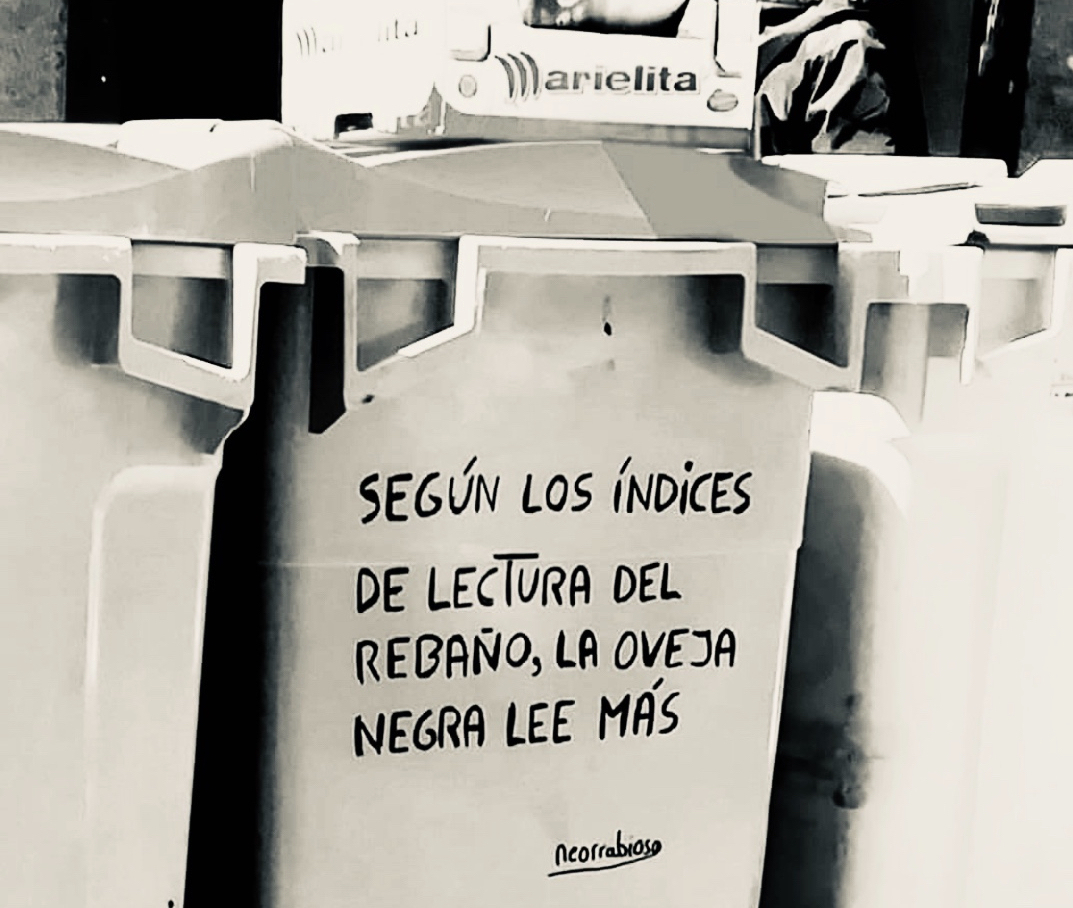 Marielita
SEGÚN LOS ÍNDICES
DE LECTURA DEL
REBAÑO, LA OVEJA
NEGRA LEE MÁS
neorrabioso